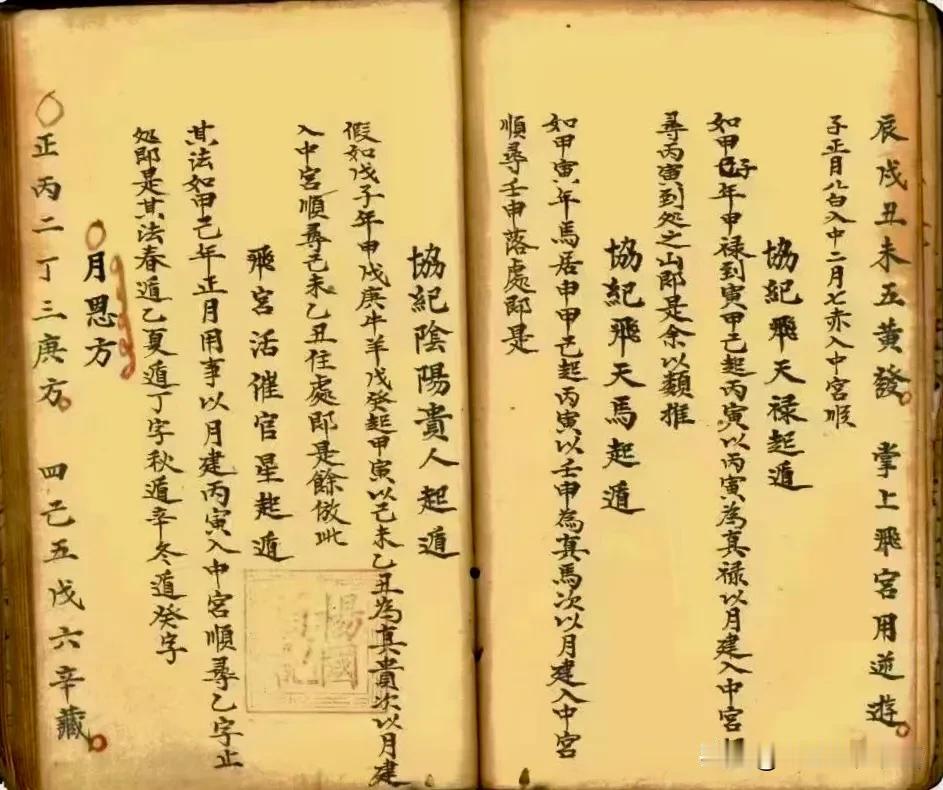 辰戌丑未五黄發 掌上飛宮用逆遊
子正月八白入中二月七赤入中宮順
協紀飛天禄起遁
如甲子年甲禄到寅甲己起丙寅以丙寅為真禄以月建入中宮順
尋丙寅到処之山即是余以類推
協紀飛天馬起遁
如甲寅年馬居申甲己起丙寅以壬申為真馬次以月建入中宮
順尋壬申落處即是
協紀陰陽貴人起遁
假如戊子年甲戊庚牛羊戊癸起甲寅以己未乙丑為真貴次以月建
入中宮順尋己未乙丑住處即是餘倣此
飛宮活催官星起遁
其法如甲己年正月用事以月建丙寅入中宮順尋乙字止
処即是其法春遁乙夏遁丁字秋遁辛冬遁癸字
月恩方
正丙二丁三庚方 四己五戊六辛藏
楊國